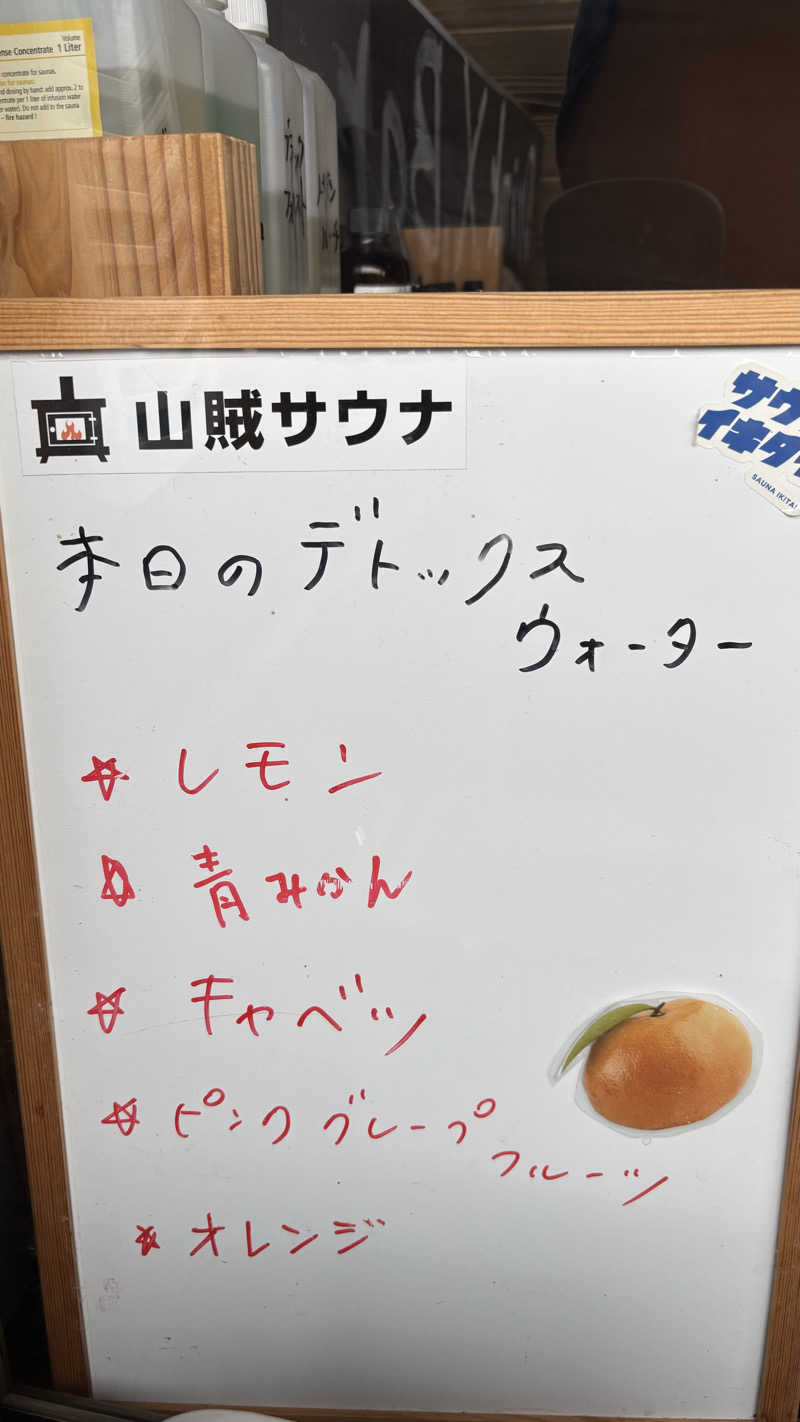 Volume
nse Concentrate 1 Liter
concentrate for saunas.
d dosing by hand: add approx. 2 to
entrate per 1 liter of infusion water
water). Do not add to the sauna
– fire hazard !
ブラック
フォレスト
山賊サウナ
サウ
イキタ
SAUNA IKITAI
本日のデトックス
ウォーター
☆ レモン
☆ 青みかん
☆ キャベツ
☆ ピンクグレープ
フルーツ
☆ オレンジ